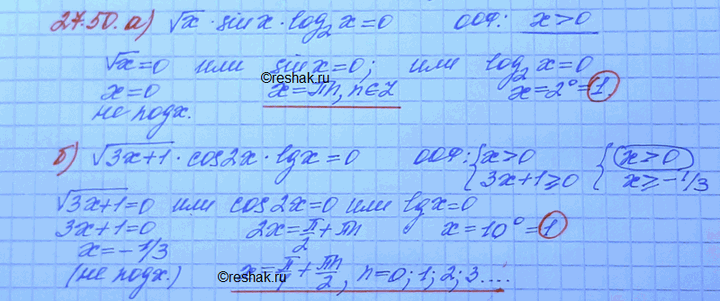 27.50. а) √x · sinx · log₂x = 0 ООФ: x>0
√x=0 или sinx=0; или log₂x=0
x=0 x=πn, n∈Z x=2⁰=1
не подх.
©reshak.ru
б) √3x+1 · cos2x · lgx=0 ООФ: { x>0 { x>0
3x+1≥0 x≥-1/3
√3x+1=0 или cos2x=0 или lgx=0
3x+1=0 2x=π/2+πn x=10⁰=1
x=-1/3
(не подх.) x=π/ + πn/2, n=0; 1; 2; 3....
©reshak.ru